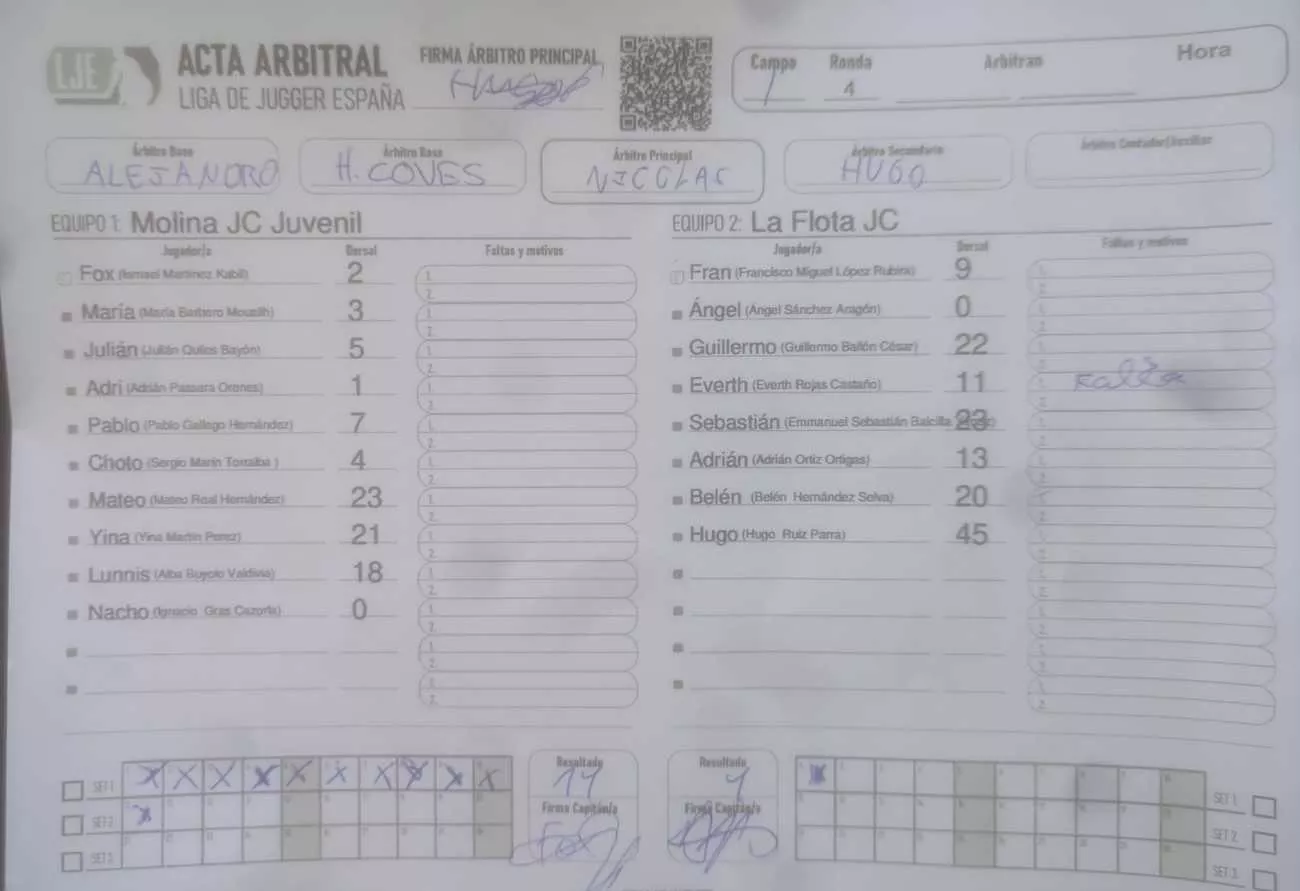 LJE ACTA ARBITRAL
LIGA DE JUGGER ESPAÑA
FIRMA ÁRBITRO PRINCIPAL
Campo Ronda Arbitran Hora
1 4
Árbitro Base Árbitro Base Árbitro Principal Árbitro Secundario Árbitro Contador/Auxiliar
ALEJANDRO H. COVES NICOLAS HUGO
EQUIPO 1: Molina JC Juvenil
Jugador/a Dorsal Faltas y motivos
Fox (Ismael Martínez Kabil) 2 1.
2.
María (María Barbero Mouslih) 3 1.
2.
Julián (Julián Quiles Bayón) 5 1.
2.
Adri (Adrián Passara Orenes) 1 1.
2.
Pablo (Pablo Gallego Hernández) 7 1.
2.
Choto (Sergio Marín Torralba ) 4 1.
2.
Mateo (Mateo Real Hernández) 23 1.
2.
Yina (Yina Martín Perez) 21 1.
2.
Lunnis (Alba Buyolo Valdivia) 18 1.
2.
Nacho (Ignacio Gras Cazorla) 0 1.
2.
1.
2.
1.
2.
EQUIPO 2: La Flota JC
Jugador/a Dorsal Faltas y motivos
Fran (Francisco Miguel López Rubira) 9 1.
2.
Ángel (Ángel Sánchez Aragón) 0 1.
2.
Guillermo (Guillermo Bailón César) 22 1.
2.
Everth (Everth Rojas Castaño) 11 1.
2.
Sebastián (Emmanuel Sebastián 23 1.
2.
Adrián (Adrián Ortiz Ortigas) 13 1.
2.
Belén (Belén Hernández Selva) 20 1.
2.
Hugo (Hugo Ruiz Parra) 45 1.
2.
1.
2.
1.
2.
1.
2.
1.
2.
SET 1 X X X X X X X X X X
SET 2 X
SET 3
Resultado
11
Firma Capitán/a
Fox
Resultado
1
Firma Capitán/a
X SET 1
SET 2
SET 3